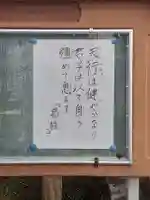 天行は健やかなり
君子は以て自ら
彊めて息まず
『易経』